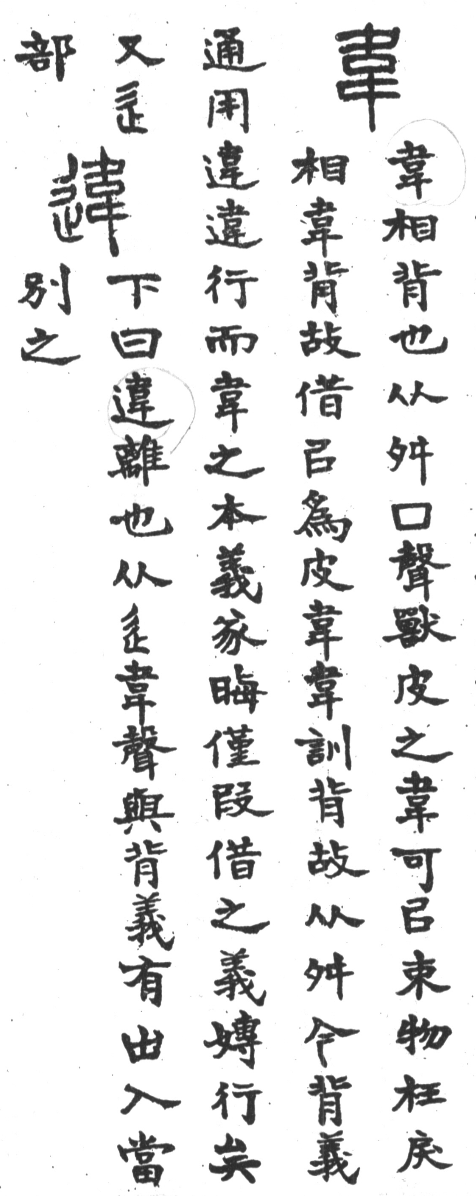 韋
韋相背也从舛口聲獸皮之韋可㠯束物枉戾
相韋背故借㠯爲皮韋韋訓背故从舛今背義
通用違違行而韋之本義㒸晦僅叚借之義嫥行矣
又辵
部
違
下曰違離也从辵韋聲與背義有出入當
別之